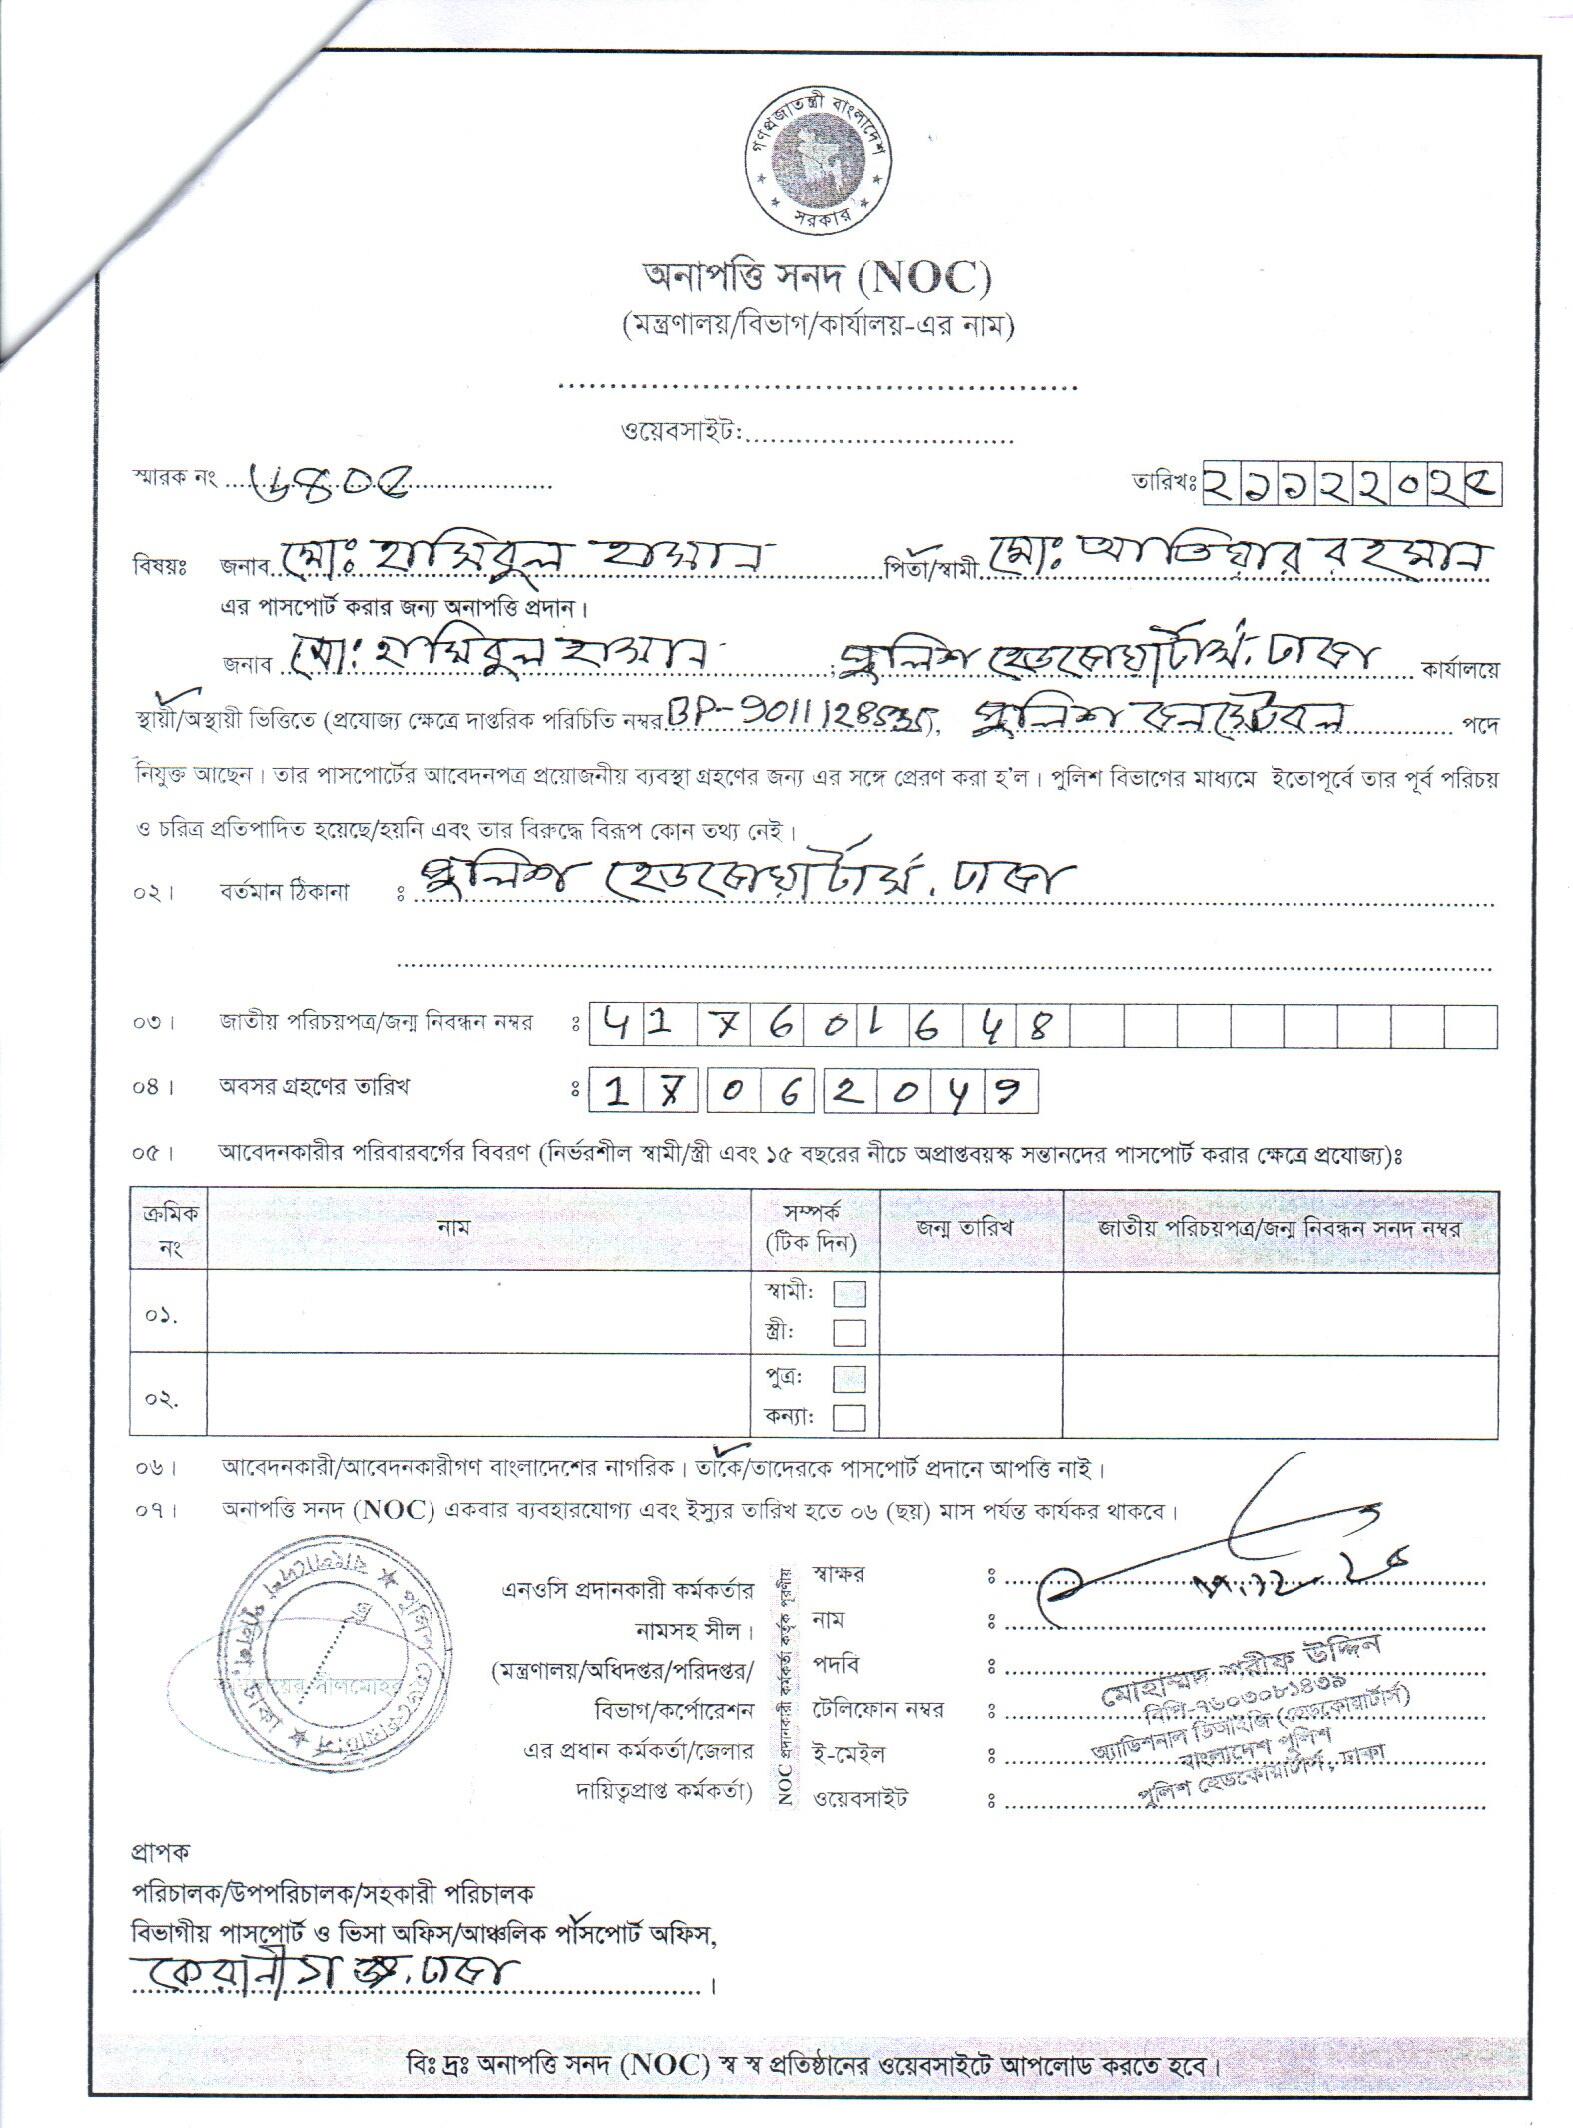 গণপ্রজাতন্ত্রী বাংলাদেশ
সরকার
অনাপত্তি সনদ (NOC)
(মন্ত্রণালয়/বিভাগ/কার্যালয়-এর নাম)
ওয়েবসাইট:
স্মারক নং ৬৪০৫ তারিখঃ ২১১২২০২৫
বিষয়ঃ জনাব মোঃ হাসিবুল হাসান পিতা/স্বামী মোঃ আতিয়ার রহমান
এর পাসপোর্ট করার জন্য অনাপত্তি প্রদান।
জনাব মোঃ হাসিবুল হাসান ; পুলিশ হেডকোয়ার্টার্স, ঢাকা কার্যালয়ে
স্থায়ী/অস্থায়ী ভিত্তিতে (প্রযোজ্য ক্ষেত্রে দাপ্তরিক পরিচিতি নম্বর), পুলিশ কনস্টেবল পদে
নিযুক্ত আছেন। তার পাসপোর্টের আবেদনপত্র প্রয়োজনীয় ব্যবস্থা গ্রহণের জন্য এর সঙ্গে প্রেরণ করা হ'ল। পুলিশ বিভাগের মাধ্যমে ইতোপূর্বে তার পূর্ব পরিচয়
ও চরিত্র প্রতিপাদিত হয়েছে/হয়নি এবং তার বিরুদ্ধে বিরূপ কোন তথ্য নেই।
০২। বর্তমান ঠিকানা ঃ পুলিশ হেডকোয়ার্টার্স, ঢাকা
০৩। জাতীয় পরিচয়পত্র/জন্ম নিবন্ধন নম্বর ঃ 417601648
০৪। অবসর গ্রহণের তারিখ ঃ 17 06 2049
০৫। আবেদনকারীর পরিবারবর্গের বিবরণ (নির্ভরশীল স্বামী/স্ত্রী এবং ১৫ বছরের নীচে অপ্রাপ্তবয়স্ক সন্তানদের পাসপোর্ট করার ক্ষেত্রে প্রযোজ্য)ঃ
ক্রমিক নং নাম সম্পর্ক (টিক দিন) জন্ম তারিখ জাতীয় পরিচয়পত্র/জন্ম নিবন্ধন সনদ নম্বর
০১. স্বামী:
স্ত্রী:
০২. পুত্র:
কন্যা:
০৬। আবেদনকারী/আবেদনকারীগণ বাংলাদেশের নাগরিক। তাকে/তাদেরকে পাসপোর্ট প্রদানে আপত্তি নাই।
০৭। অনাপত্তি সনদ (NOC) একবার ব্যবহারযোগ্য এবং ইস্যুর তারিখ হতে ০৬ (ছয়) মাস পর্যন্ত কার্যকর থাকবে।
বাংলাদেশ পুলিশ, ঢাকা
পুলিশ হেডকোয়ার্টার্স
কার্যালয়ের সীলমোহর
এনওসি প্রদানকারী কর্মকর্তার
নামসহ সীল।
(মন্ত্রণালয়/অধিদপ্তর/পরিদপ্তর/
বিভাগ/কর্পোরেশন
এর প্রধান কর্মকর্তা/জেলার
দায়িত্বপ্রাপ্ত কর্মকর্তা)
NOC প্রদানকারী কর্মকর্তা কর্তৃক পূরণীয়
স্বাক্ষর ঃ
নাম ঃ
পদবি ঃ
টেলিফোন নম্বর ঃ
ই-মেইল ঃ
ওয়েবসাইট ঃ
মোহাম্মদ শরীফ উদ্দিন
বিপি-৭৬০৩০৮১৪৩৯
অ্যাডিশনাল ডিআইজি (হেডকোয়ার্টার্স)
বাংলাদেশ পুলিশ
পুলিশ হেডকোয়ার্টার্স, ঢাকা
প্রাপক
পরিচালক/উপপরিচালক/সহকারী পরিচালক
বিভাগীয় পাসপোর্ট ও ভিসা অফিস/আঞ্চলিক পাসপোর্ট অফিস,
কেরানীগঞ্জ, ঢাকা।
বিঃ দ্রঃ অনাপত্তি সনদ (NOC) স্ব স্ব প্রতিষ্ঠানের ওয়েবসাইটে আপলোড করতে হবে।